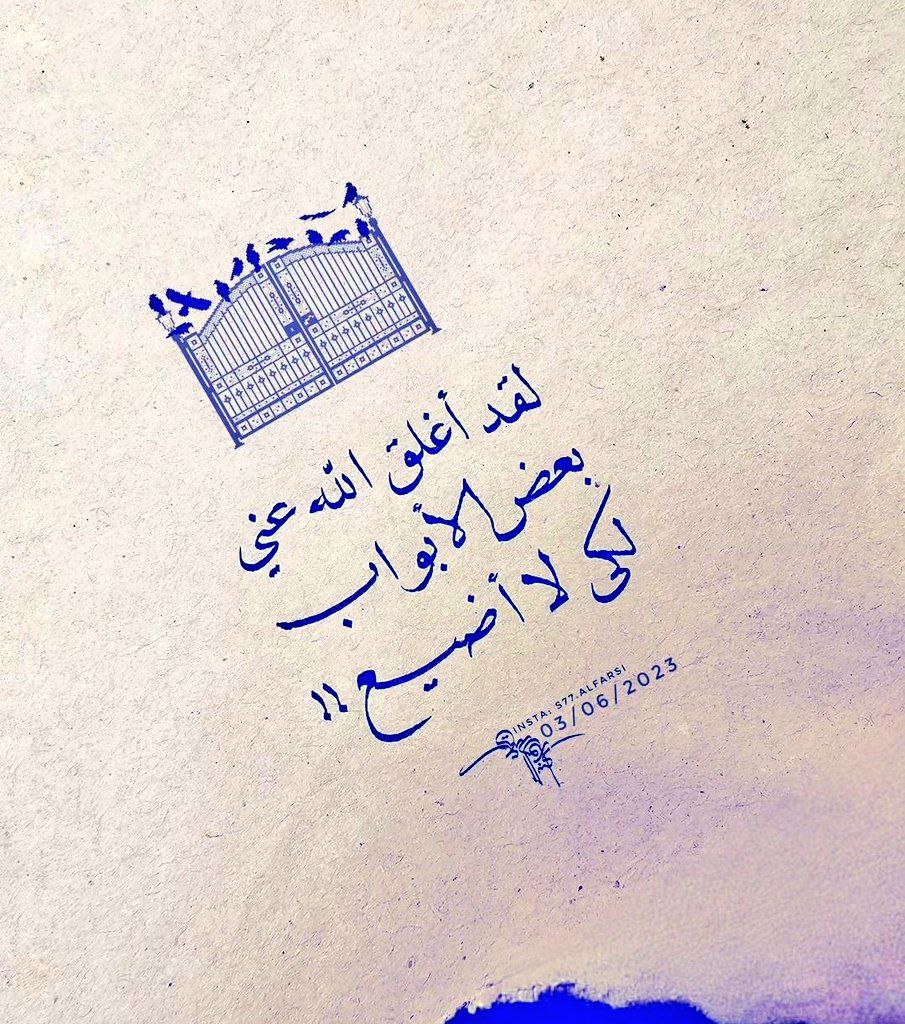 لقد أغلق الله عني
بعض الأبواب
لكي لا أضيع !!
INSTA: S77.ALFARSI
03/06/2023